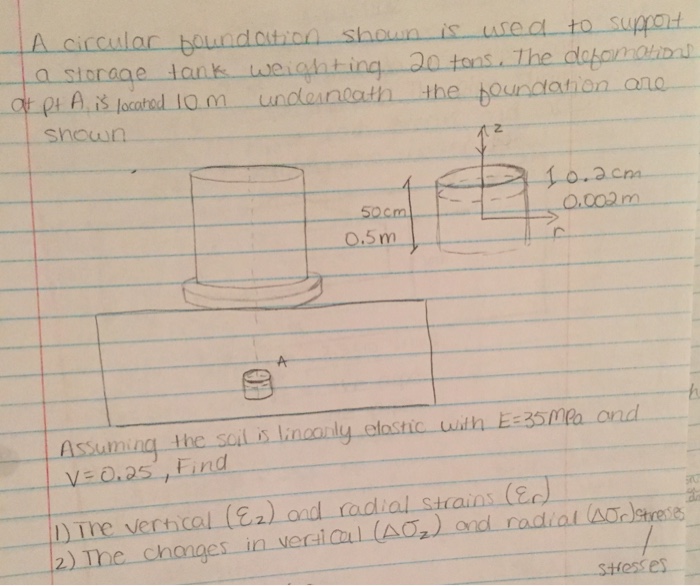 A circular foundation shown is used to support
a storage tank weighting 20 tons. The deformations
at pt A, is located 10 m underneath the foundation are
shown
z
0.2cm
50cm
0.002m
0.5m
r
A
Assuming the soil is linearly elastic with E=35MPa and
V=0.25, Find
1) The vertical (εz) and radial strains (εr)
2) The changes in vertical (Δσz) and radial (Δσr) stresses
stresses